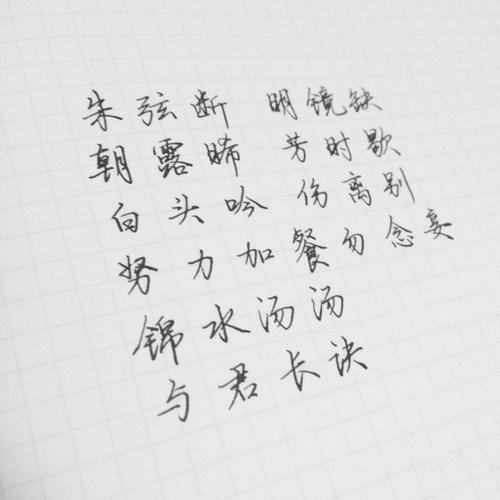 朱弦断 明镜缺
朝露晞 芳时歇
白头吟 伤离别
努力加餐勿念妾
锦水汤汤
与君长诀